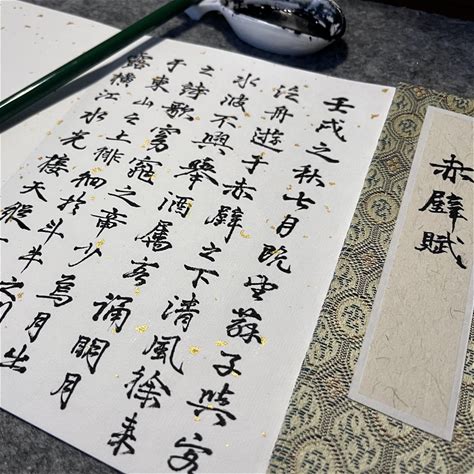 赤壁賦
壬戌之秋七月既望蘇子與客
泛舟遊于赤壁之下清風徐來
水波不興舉酒屬客誦明月
之詩歌窈窕之章少焉月出
于東山之上徘徊於斗牛之
露橫江水光接天縱一